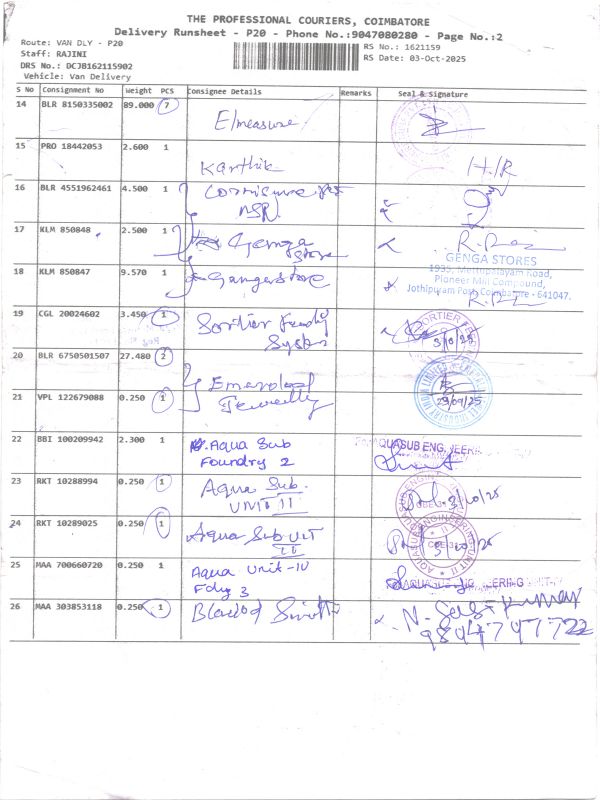 THE PROFESSIONAL COURIERS, COIMBATORE
Delivery Runsheet - P20 - Phone No.:9047080280 - Page No.:2
Route: VAN DLY - P20
RS No.: 1621159
Staff: RAJINI
RS Date: 03-Oct-2025
DRS No.: DCJB162115902
Vehicle: Van Delivery
S No Consignment No Weight PCS Consignee Details Remarks Seal & Signature
14 BLR 8150335002 89.000 7
Elmeasure
15 PRO 18442053 2.600 1
Karthik H/R
16 BLR 4551962461 4.500 1
17 KLM 850848 2.500 1 Genga
Store
GENGA STORES
1935, Mothupalayam Road,
Pioneer Mill Compound,
Jothipuram Post, Coimbatore - 641047.
18 KLM 850847 9.570 1 Gangastore
19 CGL 20024602 3.450 1 Sortier
System
3/10/25
20 BLR 6750501507 27.480 2
29/09/25
21 VPL 122679088 0.250 1
22 BBI 100209942 2.300 1 Aqua Sub
Foundry 2
AQUASUB ENG.
23 RKT 10288994 0.250 1 Aqua Sub.
UNIT II
3/10/25
24 RKT 10289025 0.250 1 Aqua Sub
II
3/10/25
25 MAA 700660720 0.250 1 Aqua Unit-IV
Fdry 3
26 MAA 303853118 0.250 1
9894747722